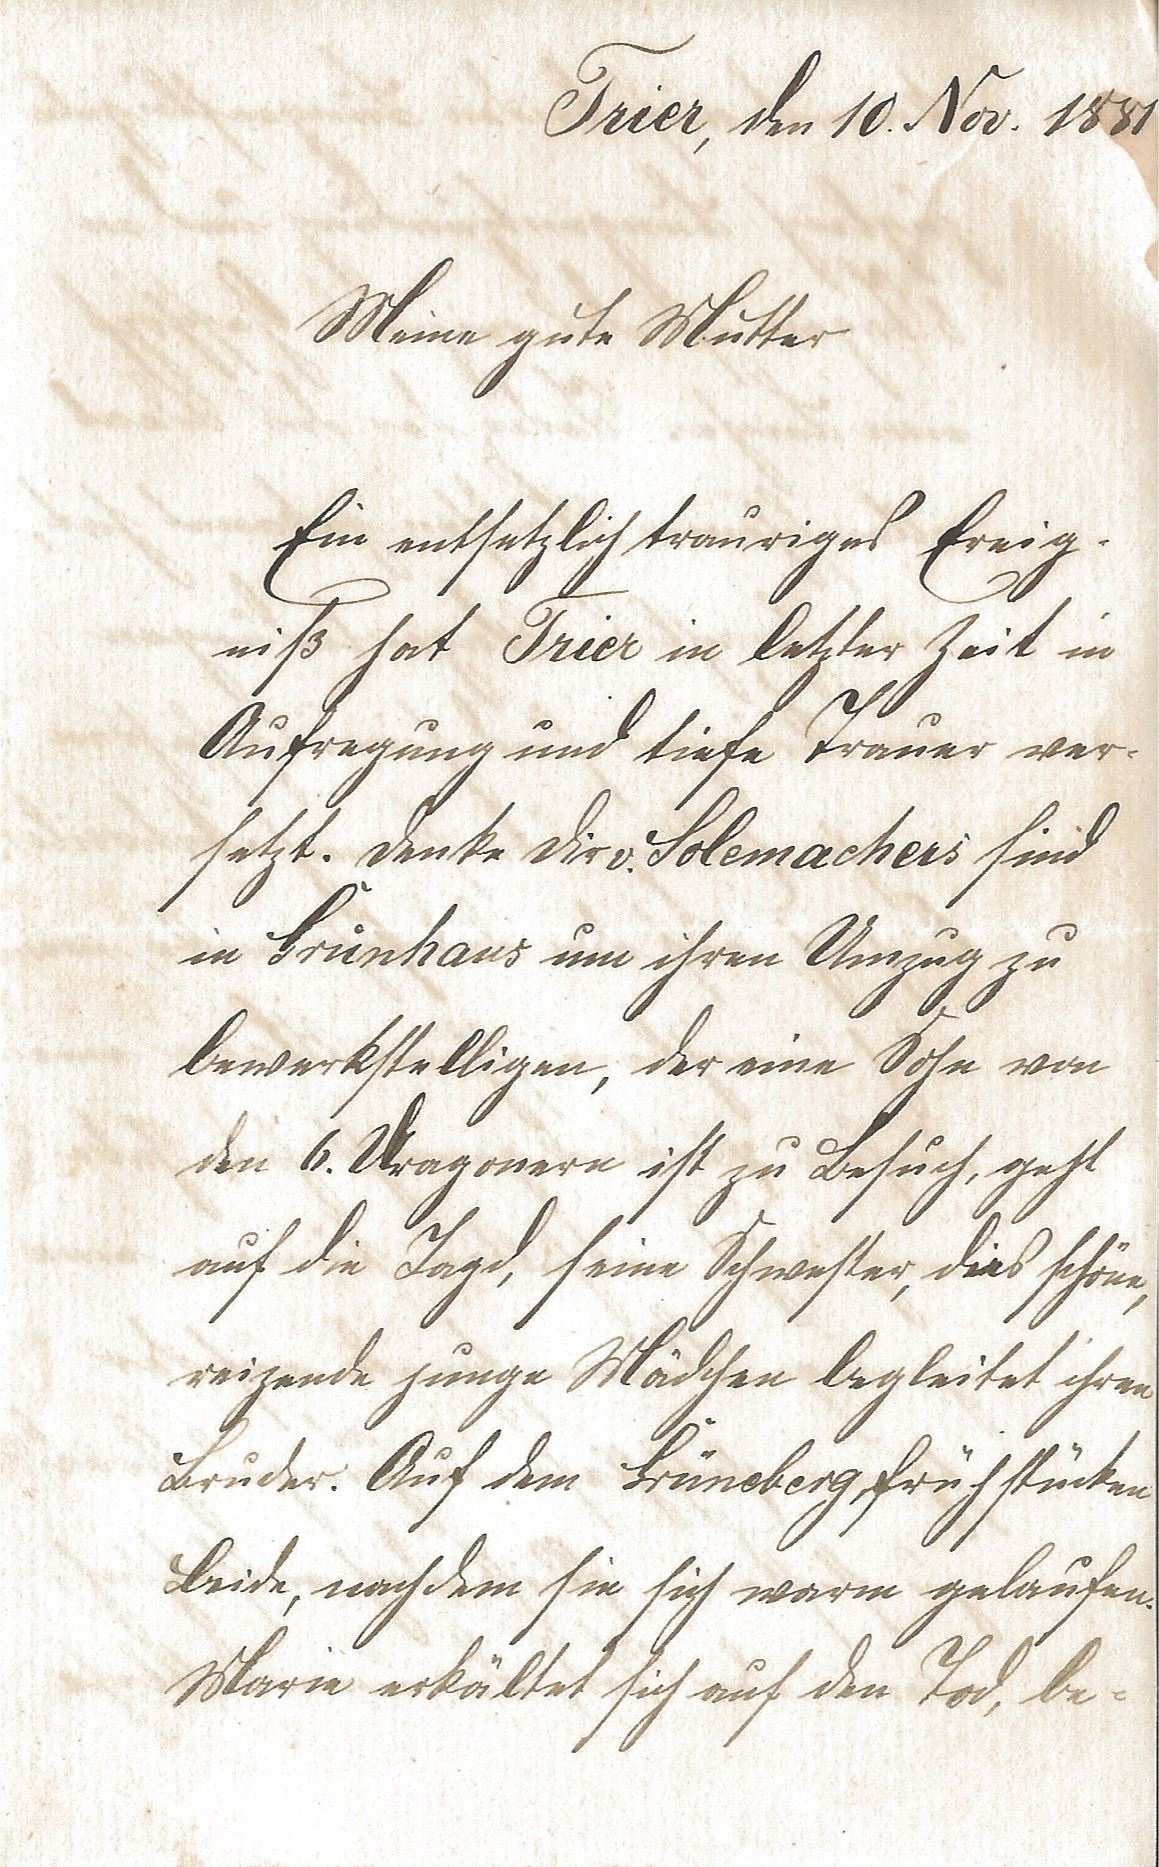 Trier, den 10. Nov. 1881
Meine gute Mutter
Ein entsetzlich trauriges Ereig-
niß hat Trier in letzter Zeit in
Aufregung und tiefe Trauer ver-
setzt. Denke Dir v. Solemachers sind
in Grünhaus um ihren Umzug zu
bewerkstelligen, der eine Sohn von
den 6. Dragonern ist zu Besuch, geht
auf die Jagd, seine Schwester, dies schöne,
reizende junge Mädchen begleitet ihren
Bruder. Auf dem Grüneberg frühstücken
Beide, nachdem sie sich warm gelaufen.
Marie erkältet sich auf den Tod, be-